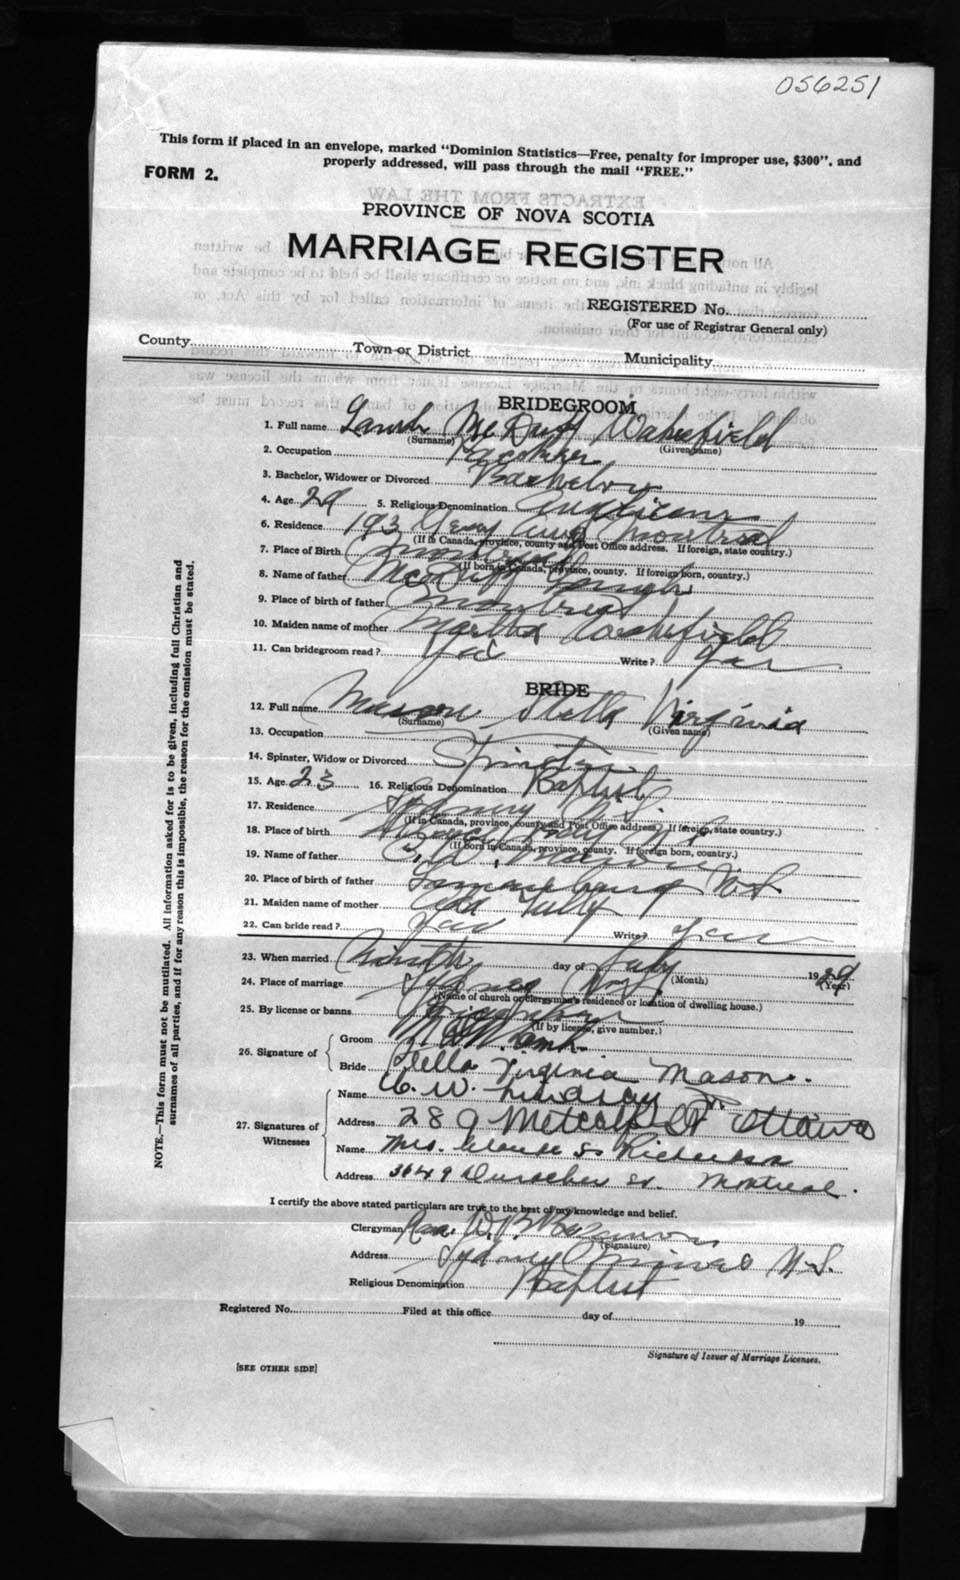 056251
This form if placed in an envelope, marked "Dominion Statistics—Free, penalty for improper use, $300", and
properly addressed, will pass through the mail "FREE."
FORM 2.
PROVINCE OF NOVA SCOTIA
MARRIAGE REGISTER
REGISTERED No.
(For use of Registrar General only)
County Town or District Municipality
BRIDEGROOM
1. Full name Lamb McDuff Wakefield
(Surname) (Given name)
2. Occupation
3. Bachelor, Widower or Divorced Bachelor
4. Age 29 5. Religious Denomination Anglican
6. Residence 193 Montreal
(If in Canada, province, county and Post Office address. If foreign, state country.)
7. Place of Birth Montreal
(If born in Canada, province, county. If foreign born, country.)
8. Name of father McDuff Lamb
9. Place of birth of father Montreal
10. Maiden name of mother Martha Wakefield
11. Can bridegroom read? Yes Write? Yes
BRIDE
12. Full name Mason Stella Virginia
(Surname) (Given name)
13. Occupation
14. Spinster, Widow or Divorced Spinster
15. Age 23 16. Religious Denomination Baptist
17. Residence Sydney N.S.
(If in Canada, province, county and Post Office address. If foreign, state country.)
18. Place of birth N.S.
(If born in Canada, province, county. If foreign born, country.)
19. Name of father Mason
20. Place of birth of father N.S.
21. Maiden name of mother Tully
22. Can bride read? Yes Write? Yes
23. When married Ninth day of July 1929
(Month) (Year)
24. Place of marriage Sydney
(Name of church or clergyman's residence or location of dwelling house.)
25. By license or banns
(If by license, give number.)
26. Signature of
Groom Lamb.
Bride Stella Virginia Mason.
27. Signatures of Witnesses
Name C. W. Lindsay
Address 289 Metcalfe St Ottawa
Name Mrs. Claude S. Richardson
Address 3649 Durocher St. Montreal.
I certify the above stated particulars are true to the best of my knowledge and belief.
Clergyman Rev. W. B.
(Signature)
Address Sydney Mines N.S.
Religious Denomination Baptist
Registered No. Filed at this office day of 19
Signature of Issuer of Marriage Licenses.
[SEE OTHER SIDE]
NOTE.—This form must not be mutilated. All information asked for is to be given, including full Christian and
surnames of all parties, and if for any reason this is impossible, the reason for the omission must be stated.